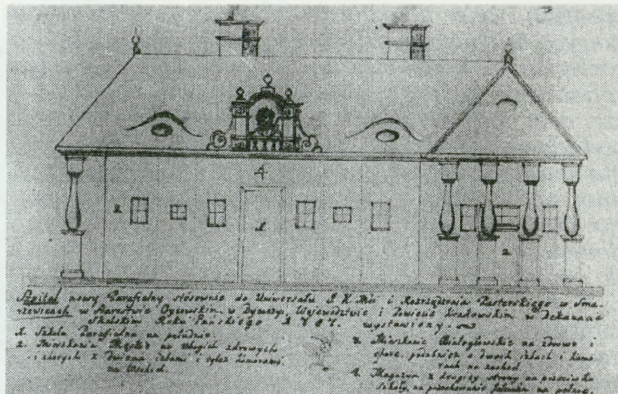 4
2
1
2
Szpital nowy Parafialny stósownie do Uniwersału J. K. Mci i Rozrządzenia Pasterskiego w Sma-
rzewicach w Starostwie Oycowskim w Województwie i Powiecie Krakowskim w Dekanacie
Skalskim Roku Pańskiego 1787. wystawiony.
1. Szkoła Parafialna na południe
2. Mieszkania Męskie na ubogich zdrowych
i chorych z dwiema izbami i tyleż komorami
na wschod.
Mieszkanie Białogłowskie na zdrowe i
chore, o dwoch izbach i komo
rach na zachod
4. Magazyn z drugiey strony na przeciwko
szkoły, na przechowanie na połnoc.